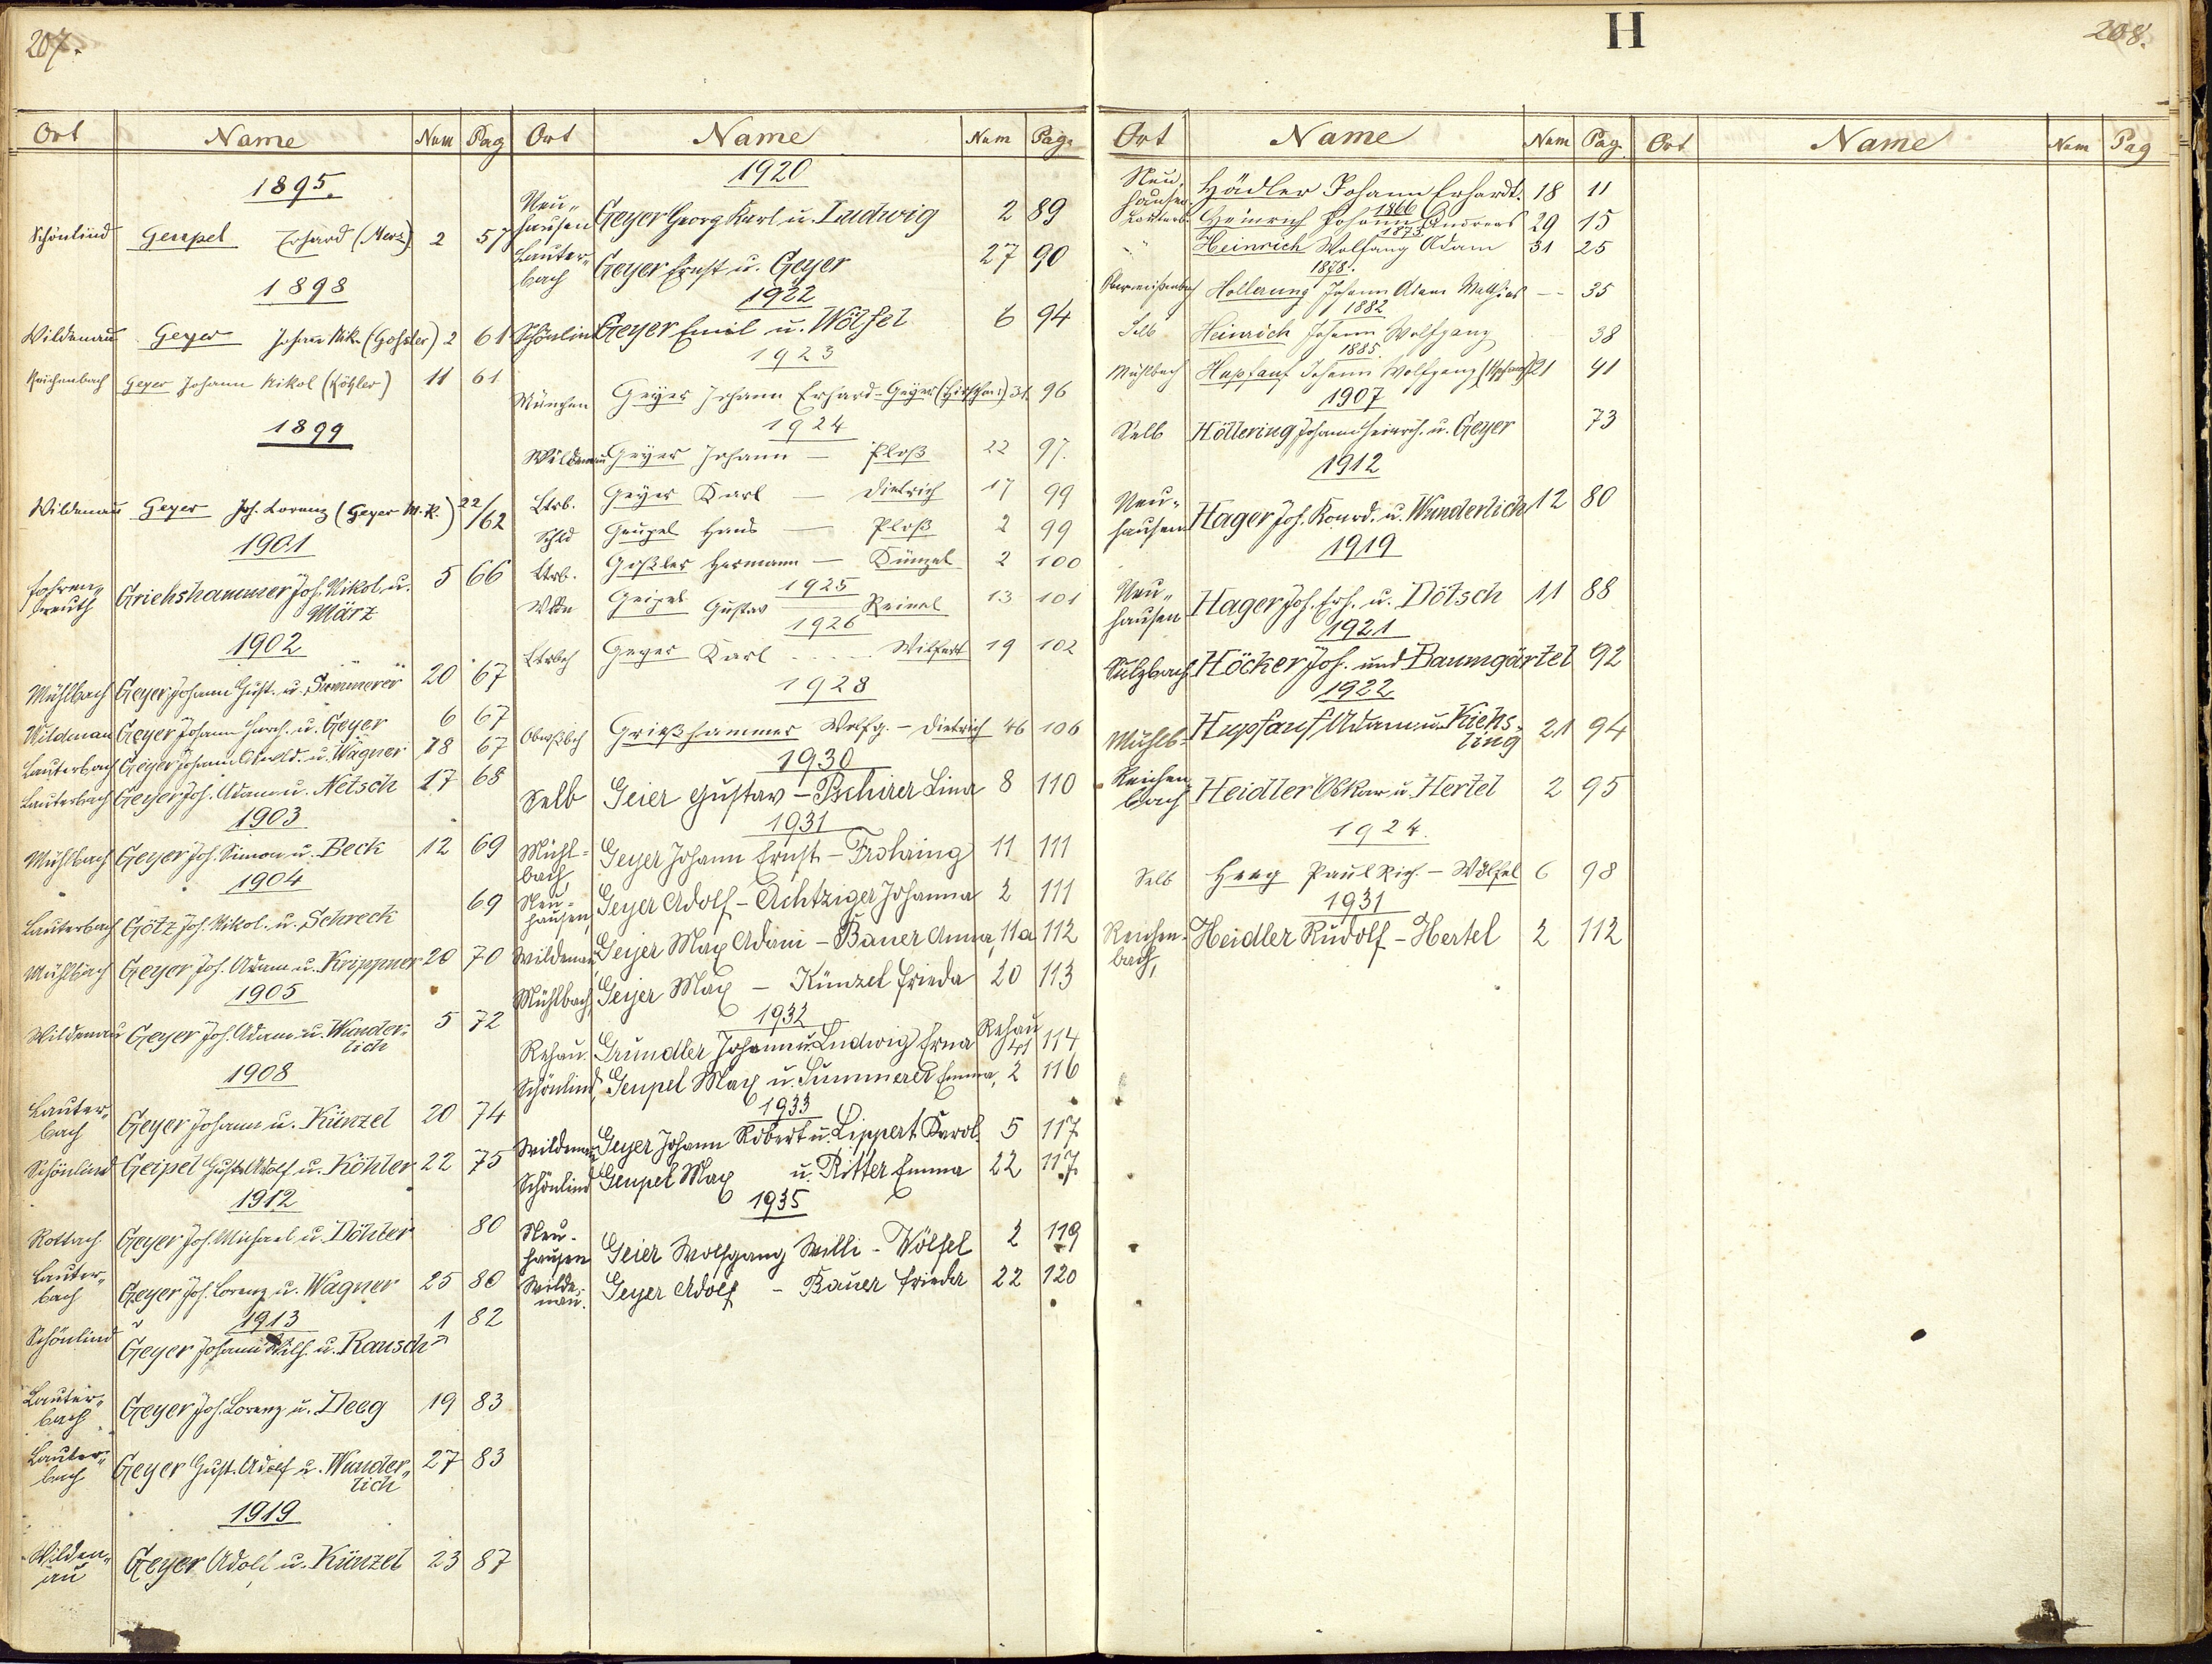 207.
Ort Name Num Pag
1895.
Schönlind Geupel Erhard (Merz) 2 57
1898
Wildenau Geyer Johann Nik. (Goßler) 2 61
Reichenbach Geyer Johann Nikol (Köhler) 11 61
1899
Wildenau Geyer Joh. Lorenz (Geyer M. K.) 22/62
1901
Fohren„
reuth Griehshammer Joh. Nikol. u. 5 66
März
1902
Mühlbach Geyer Johann Gust. u. Summerer 20 67
Wildenau Geyer Johann Heinr. u. Geyer 6 67
Lauterbach Geyer Johann Oswald. u. Wagner 28 67
Lauterbach Geyer Joh. Adam u. Netsch 17 68
1903
Mühlbach Geyer Joh. Simon u. Beck 12 69
1904
Lauterbach Götz Joh. Nikol. u. Schreck 69
Mühlbach Geyer Joh. Adam u. Krippner 20 70
1905
Wildenau Geyer Joh. Adam u. Wunder- 5 72
lich
1908
Lauter„
bach Geyer Johann u. Künzel 20 74
Schönlind Geipel Gust. Adolf u. Köhler 22 75
1912
Rottach Geyer Joh. Michael u. Döhler 80
Lauter„
bach Geyer Joh. Lorenz u. Wagner 25 80
1913
Schönlind Geyer Johann Wilh. u. Rausch 1 82
Lauter„
bach Geyer Joh. Lorenz u. Deeg 19 83
Lauter„
bach Geyer Gust. Adolf u. Wunder„ 27 83
lich
1919
Wilden„
au Geyer Adolf u. Künzel 23 87
Ort Name Num Pag.
1920
Neu„
hausen Geyer Georg Karl u. Ludwig 2 89
Lauter„
bach Geyer Ernst u. Geyer 27 90
1922
Schönlind Geyer Emil u. Wölfel 6 94
1923
München Geyer Johann Erhard - Geyer 31 96
1924
Wildenau Geyer Johann — Ploß 22 97.
Ltrb. Geyer Karl — Dietrich 17 99
Schld Geupel Hans — Ploß 2 99
Ltrb. Goßler Hermann — Künzel 2 100
1925
Wldn Geipel Gustav Reinel 13 101
1926
Ltrbch Geyer Karl Wilfert 19 102
1928
Obwßbch Grießhammer Wolfg. - Dietrich 46 106
1930
Selb Geier Gustav - Pschirer Lina 8 110
1931
Mühl=
bach, Geyer Johann Ernst - Frohring 11 111
Neu=
hausen, Geyer Adolf - Achtziger Johanna 2 111
Wildenau, Geyer Max Adam - Bauer Anna, 11a 112
Mühlbach, Geyer Max - Künzel Frieda 20 113
1932
Rehau. Gründler Johann u. Ludwig Erna Rehau 41 114
Schönlind, Geupel Max u. Summerer Emma, 2 116
1933
Wildenau Geyer Johann Robert u. Lippert Karol. 5 117
Schönlind Geupel Max u. Ritter Emma 22 117
1935
Neu-
hausen Geier Wolfgang Willi - Wölfel 2 119
Wilde-
nau. Geyer Adolf - Bauer Frieda 22 120
H
208.
Ort Name Num Pag.
Neu„
hausen Hädler Johann Erhardt. 18 11
1866
Lauterb. Heinrich Johann Andreas 29 15
1873
" Heinrich Wolfang Adam 31 25
1878.
Oberweißenbach Hollerung Johann Adam Matthias — 35
1882
Selb Heinrich Johann Wolfgang 38
1885.
Mühlbach Hupfauf Johann Wolfgang 21 41
1907
Selb Höllering Johann Heinrich. u. Geyer 73
1912
Neu=
hausen Hager Joh. Konrd. u. Wunderlich 12 80
1919
Neu„
hausen Hager Joh. Erh. u. Dötsch 11 88
1921
Sulzbach Höcker Joh. und Baumgärtel 92
1922
Mühlb- Hupfauf Adam u. Kiehs- 21 94
ling
Reichen
bach Heidler Oskar u. Hertel 2 95
1924.
Selb Heeg Paul Rich. - Wölfel 6 98
1931
Reichen-
bach, Heidler Rudolf - Hertel 2 112
Ort Name Num Pag